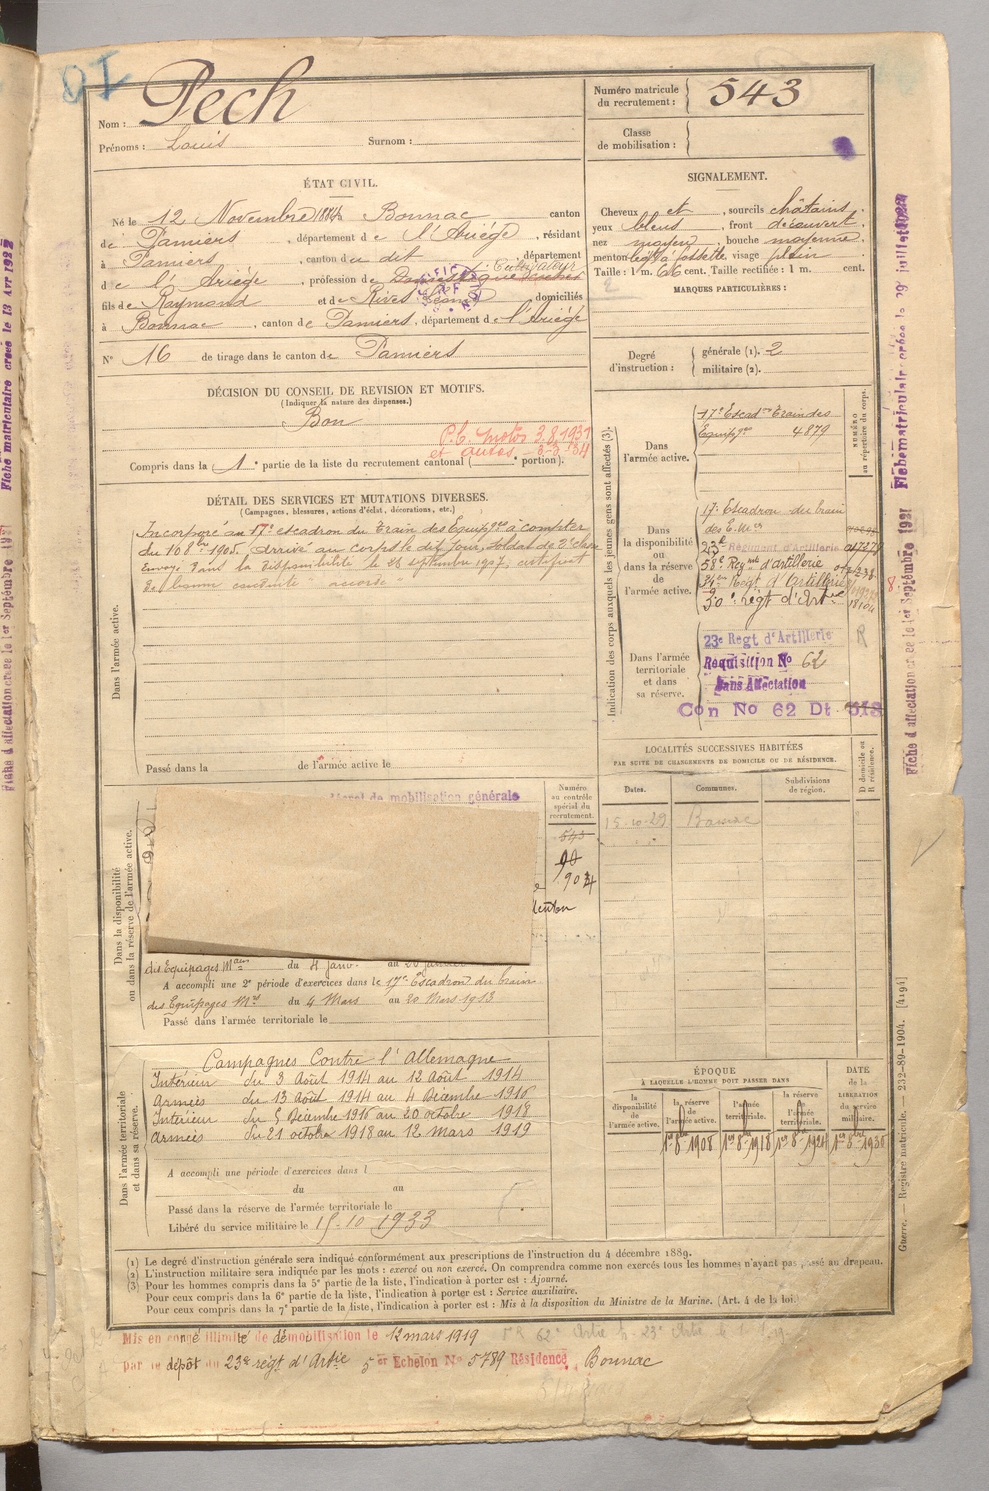 Nom : Pech
Prénoms : Louis Surnom :
Numéro matricule du recrutement : 543
Classe de mobilisation :
ÉTAT CIVIL.
Né le 12 Novembre 1884 à Bonnac, canton
de Pamiers, département de l'Ariège, résidant
à Pamiers, canton du dit, département
de l'Ariège, profession de Cultivateur
fils de Raymond et de Rives domiciliés
à Bonnac, canton de Pamiers, département de l'Ariège
N° 16 de tirage dans le canton de Pamiers
SIGNALEMENT.
Cheveux et, sourcils châtains.
yeux bleus, front découvert.
nez moyen, bouche moyenne.
menton à fossette, visage plein
Taille : 1 m. 66 cent. Taille rectifiée : 1 m. cent.
MARQUES PARTICULIÈRES :
Degré d'instruction : générale (1). 2
militaire (2).
DÉCISION DU CONSEIL DE REVISION ET MOTIFS.
(Indiquer la nature des dispenses.)
Bon
P.C. motos 3.8.1931
et autos
Compris dans la 1e partie de la liste du recrutement cantonal ( e portion).
DÉTAIL DES SERVICES ET MUTATIONS DIVERSES.
(Campagnes, blessures, actions d'éclat, décorations, etc.)
Incorporé au 17e escadron du Train des Equipges à compter
du 10 8bre 1905, arrivé au corps le dit jour, soldat de 2e classe
Envoyé dans la disponibilité le 28 septembre 1907, certificat
de bonne conduite "accordé"
Dans l'armée active.
Passé dans la de l'armée active le
Indication des corps auxquels les jeunes gens sont affectés (3).
NUMÉRO au répertoire du corps.
Dans l'armée active.
17e Escadon Train des
Equipges 4879
Dans la disponibilité ou dans la réserve de l'armée active.
17e Escadron du train
des E. Mres
23e Régiment d'Artillerie
58e Regmt d'artillerie
Regt d'Artillerie
30e régt d'Artie 18104
Dans l'armée territoriale et dans sa réserve.
23e Regt d'Artillerie R
Requisition No 62
Sans Affectation
Con No 62 Dt 513
LOCALITÉS SUCCESSIVES HABITÉES
PAR SUITE DE CHANGEMENTS DE DOMICILE OU DE RÉSIDENCE.
Dates. Communes. Subdivisions de région. D domicile ou R résidence.
15-10-29 Bonnac
de mobilisation générale
Numéro au contrôle spécial du recrutement.
543
90
Dans la disponibilité ou dans la réserve de l'armée active.
des Equipages Mres du 4 Janv. au
A accompli une 2e période d'exercices dans le 17e Escadron du train
des Equipages Mres du 4 Mars au 20 Mars 1913
Passé dans l'armée territoriale le
Dans l'armée territoriale et dans sa réserve.
Campagnes Contre l'Allemagne
Intérieur du 3 Août 1914 au 12 Août 1914
Armées du 13 Août 1914 au 4 Décembre 1916
Intérieur du 5 Décembre 1916 au 20 octobre 1918
armées du 21 octobre 1918 au 12 Mars 1919
A accompli une période d'exercices dans l
du au
Passé dans la réserve de l'armée territoriale le
Libéré du service militaire le 15-10-1933
ÉPOQUE
À LAQUELLE L'HOMME DOIT PASSER DANS
DATE de la LIBÉRATION du service militaire.
la disponibilité de l'armée active. la réserve de l'armée active. l'armée territoriale. la réserve de l'armée territoriale.
1er 8bre 1908 1er 8bre 1918 1er 8bre 1924 1er 8bre 1930
(1) Le degré d'instruction générale sera indiqué conformément aux prescriptions de l'instruction du 4 décembre 1889.
(2) L'instruction militaire sera indiquée par les mots : exercé ou non exercé. On comprendra comme non exercés tous les hommes n'ayant pas passé au drapeau.
(3) Pour les hommes compris dans la 5e partie de la liste, l'indication à porter est : Ajourné.
Pour ceux compris dans la 6e partie de la liste, l'indication à porter est : Service auxiliaire.
Pour ceux compris dans la 7e partie de la liste, l'indication à porter est : Mis à la disposition du Ministre de la Marine. (Art. 4 de la loi.)
Mis en congé illimité de démobilisation le 12 mars 1919
par le dépôt du 23e régt d'Artie 5er Echelon No 5789 Résidence Bonnac
Guerre. — Registre matricule. — 232-89-1904. [4194]
Fiche matriculaire créée le 29 juillet 1922
Fiche d'affectation créée le 1er Septembre 1931
Fiche matriculaire créée le 13 Avr 1932
Fiche d'affectation créée le 1er Septembre 1931